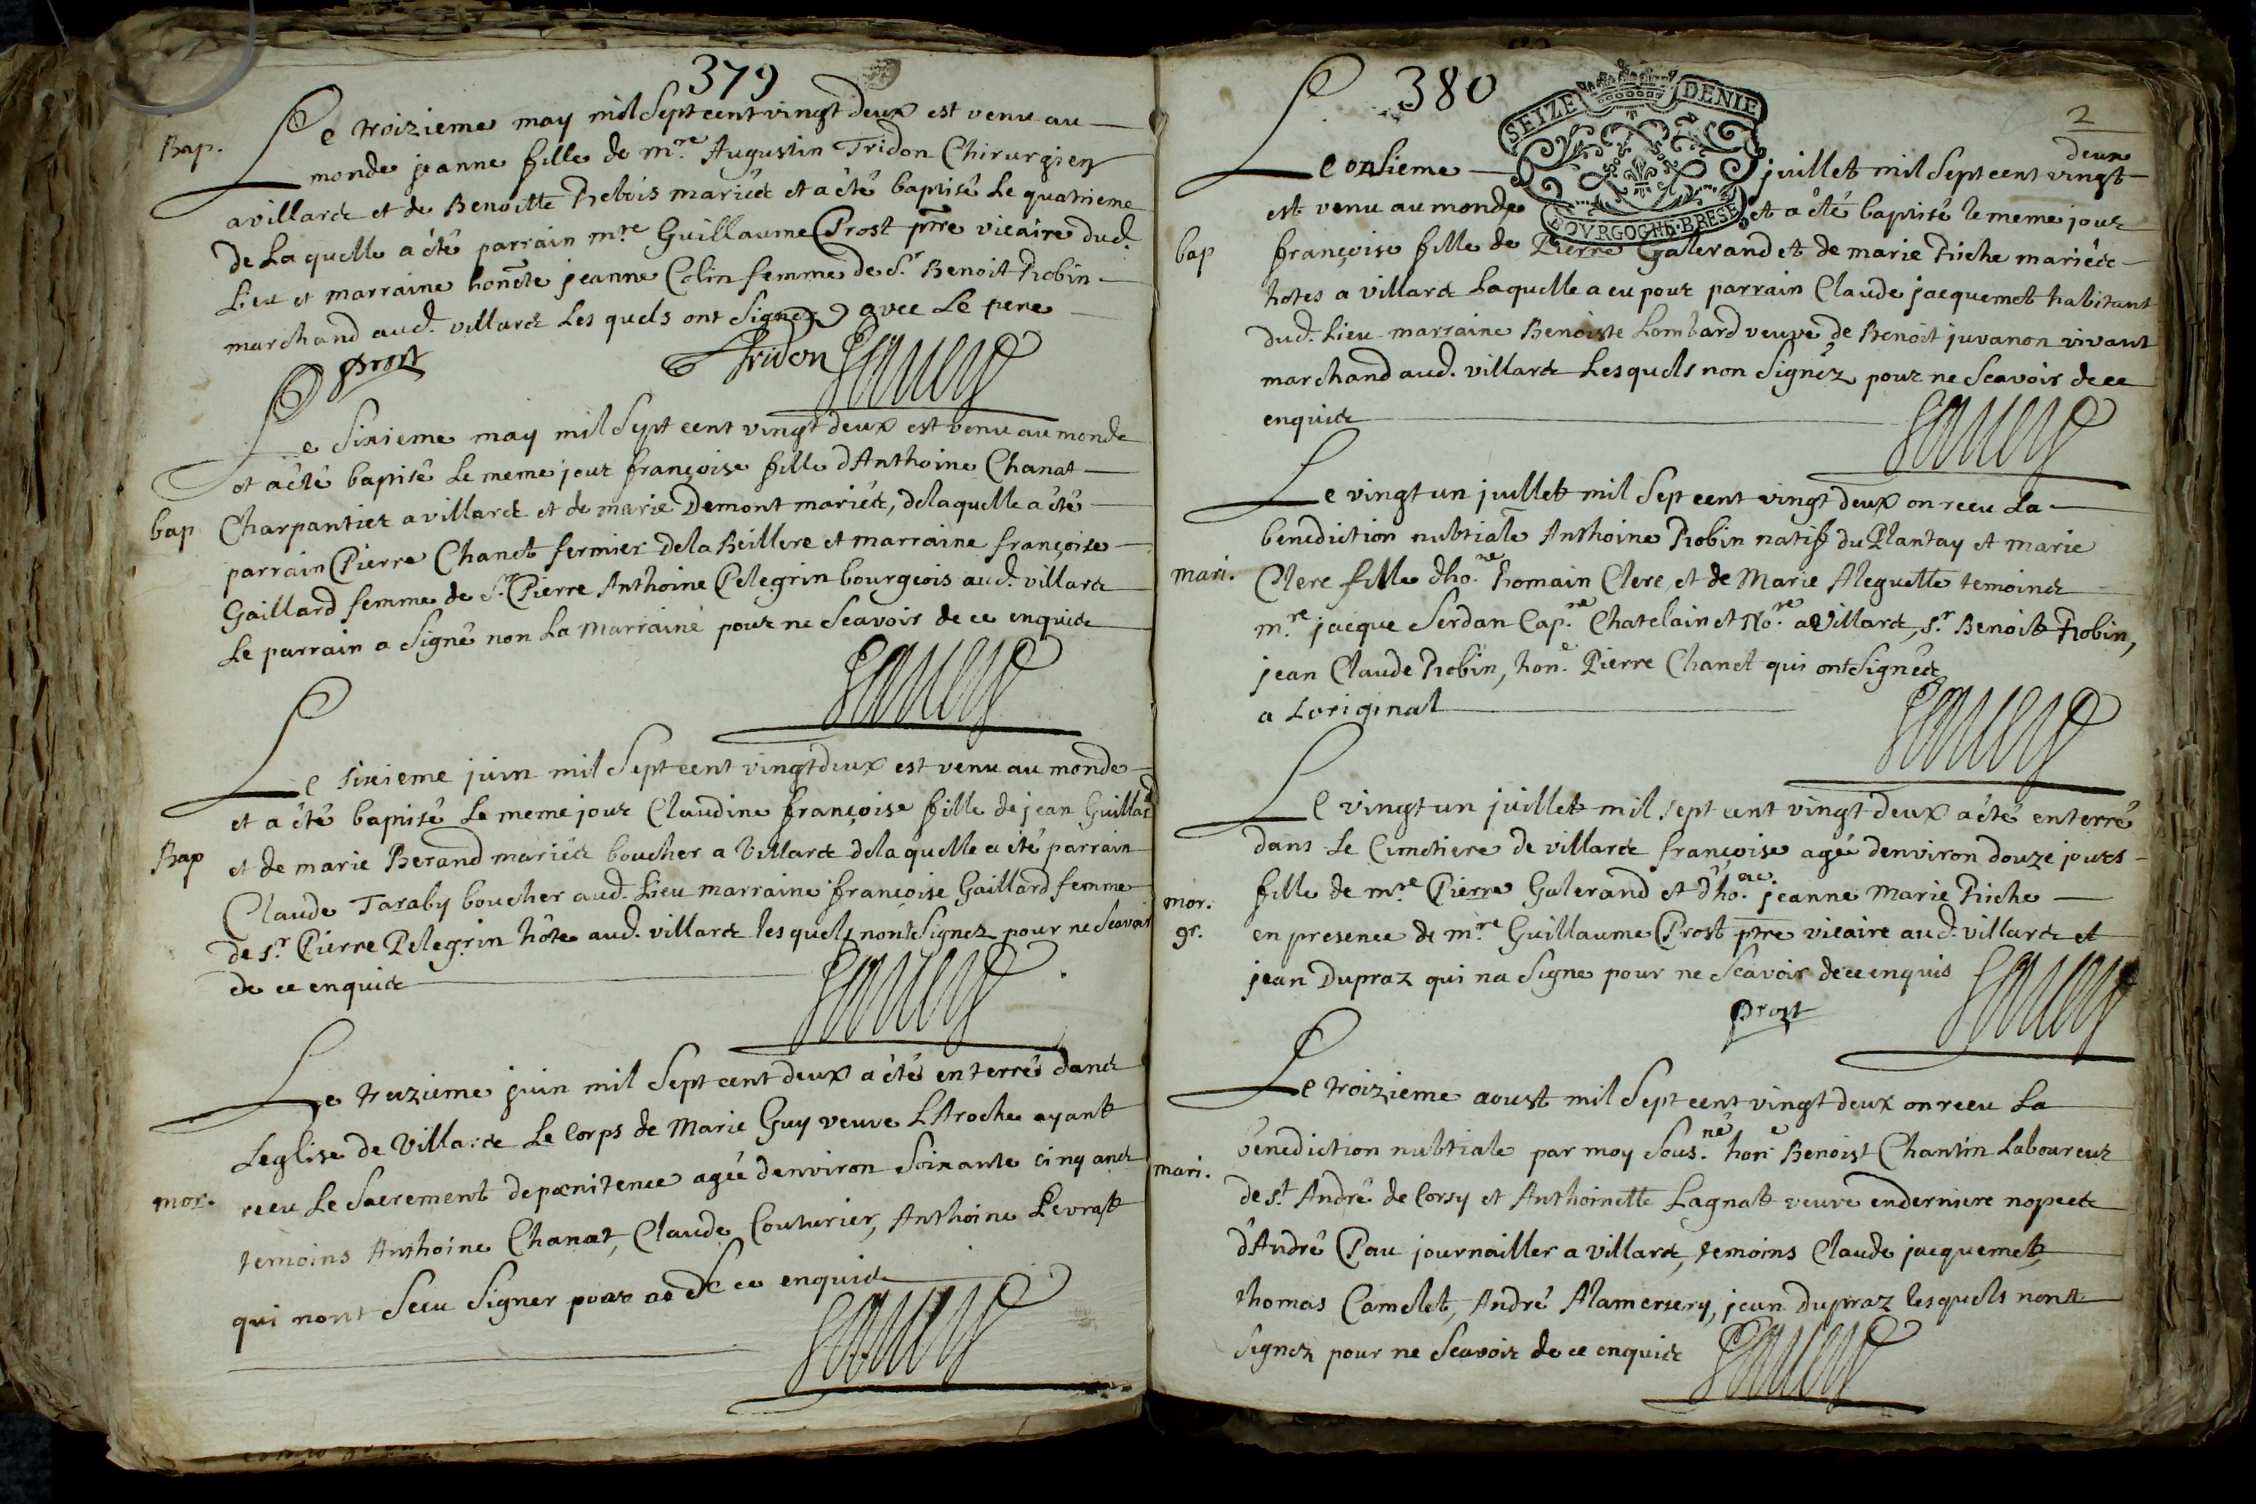 379
Bap.
Le troizieme may mil Sept cent vingt deux est venu au
monde jeanne fille de m.re Augustin Tridon Chirurgien
a villard et de Benoitte Rebois mariéd et a été baptisé Le quatrieme
De La quelle a été parrain m.re Guillaume Prost ptre vicaire dud.
Lieu et marraine honete jeanne Colin femme de S.r Benoit Robin
marchand aud. villard Les quels ont Signez avec Le pere
Prost Tridon
bap
Le Sixieme may mil Sept cent vingt deux est venu au monde
et a été baptisé Le meme jour françoise fille d'Anthoine Chanat
Charpantier a villard et de marie Demont mariéd, de laquelle a été
parrain Pierre Chanet fermier de la Beillere et marraine françoise
Gaillard femme de S.r Pierre Anthoine Pelegrin bourgeois aud. villard
Le parrain a Signé non La Marraine pour ne Scavoir de ce enquid
Bap
Le sixieme juin mil Sept cent vingt deux est venu au monde
et a été baptisé Le meme jour Claudine françoise fille de jean Guillard
et de marie Berand mariéd boucher a Villard de la quelle a été parrain
Claude Taraby boucher aud. Lieu marraine françoise Gaillard femme
de S.r Pierre Pelegrin hôte aud. villard les quels nont Signez pour ne Scavoir
de ce enquid
mor.
Le treizieme juin mil Sept cent deux a été enterré dand
Leglise de Villard Le Corps de Marie Guy veuve LAroche ayant
receu Le Sacrement de pœnitence agée denviron Soixante cinq and
temoins Anthoine Chanat, Claude Couturier, Anthoine Pevrast
qui nont Sceu Signer pour de ce enquid
380
SEIZE DENIE
BOVRGOGNE·BRESE
2
bap
Le onsieme juillet mil Sept cent vingt deux
est venu au monde et a été baptisé le meme jour
françoise fille de Pierre Galerand et de marie Riche mariéd
hotes a villard Laquelle a eu pour parrain Claude jacquemet habitant
dud. Lieu marraine Benoiste Lombard veuve de Benoit juvanon vivant
marchand aud. villard Lesquels non Signéz pour ne Scavoir de ce
enquid
mari.
Le vingt un juillet mil Sept cent vingt deux on receu La
benediction nubtiale Anthoine Robin natif du Plantay et marie
Clere fille dho.ne Romain Clere et de Marie Aleguette temoind
m.re jacque Serdan Cap.ne Chatelain et No.re a Villard, s.r Benoit Robin,
jean Claude Robin, hon.e Pierre Chanet qui ont Signéd
a Loriginal
mor.
gr.
Le vingt un juillet mil sept cent vingt deux a été enterré
dans Le Cimetiere de villard françoise agée denviron douze jours
fille de m.re Pierre Galerand et d'ho. jeanne Marie Riche
en presence de m.re Guillaume Prost ptre vicaire aud. villard et
jean Dupraz qui na Signe pour ne Scavoir de ce enquis
Prost
mari.
Le troizieme aoust mil Sept cent vingt deux on receu La
benediction nubtiale par moy Sous.né hon.e Benoist Chantin Laboureur
de s.t André de Corsy et Anthoinette Lagnat veuve en derniere nopced
d'André Pau journailler a villard, temoins Claude jacquemet
thomas Camelet, André Alamersery, jean dupraz lesquels nont
Signez pour ne Scavoir de ce enquid